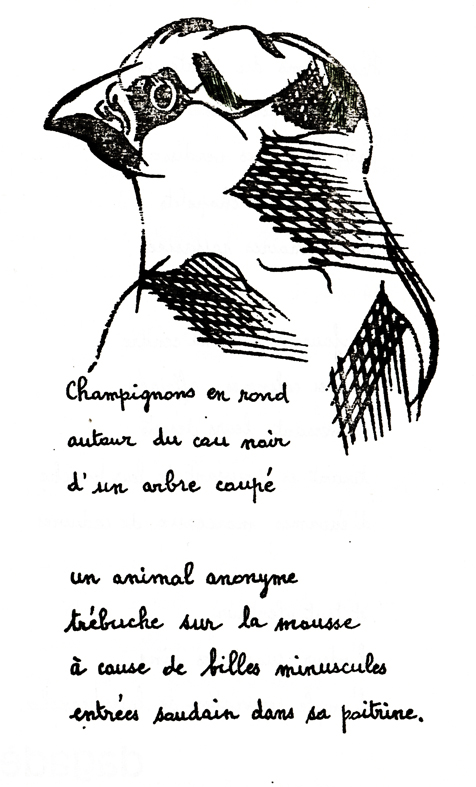 Champignons en rond
autour du cou noir
d'un arbre coupé
un animal anonyme
trébuche sur la mousse
à cause de billes minuscules
entrées soudain dans sa poitrine.